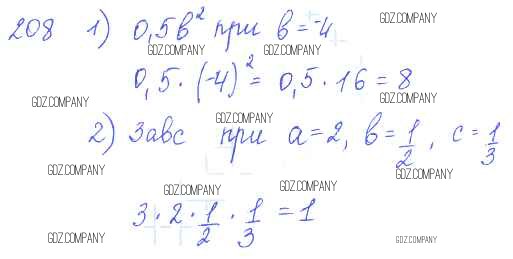 208 1) 0,5b² при b = -4
GDZ.COMPANY GDZ.COMPANY GDZ.COMPANY
0,5 · (-4)² = 0,5 · 16 = 8
GDZ.COMPANY GDZ.COMPANY
GDZ.COMPANY
2) 3abc при a = 2, b = 1/2, c = 1/3
GDZ.COMPANY GDZ.COMPANY
GDZ.COMPANY GDZ.COMPANY
3 · 2 · 1/2 · 1/3 = 1
GDZ.COMPANY GDZ.COMPANY